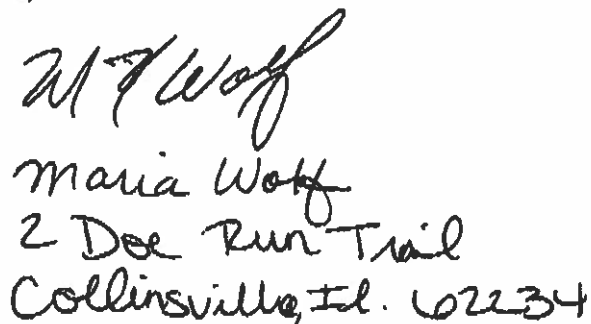 M F Wolf
Maria Wolf
2 Doe Run Trail
Collinsville, Il. 62234